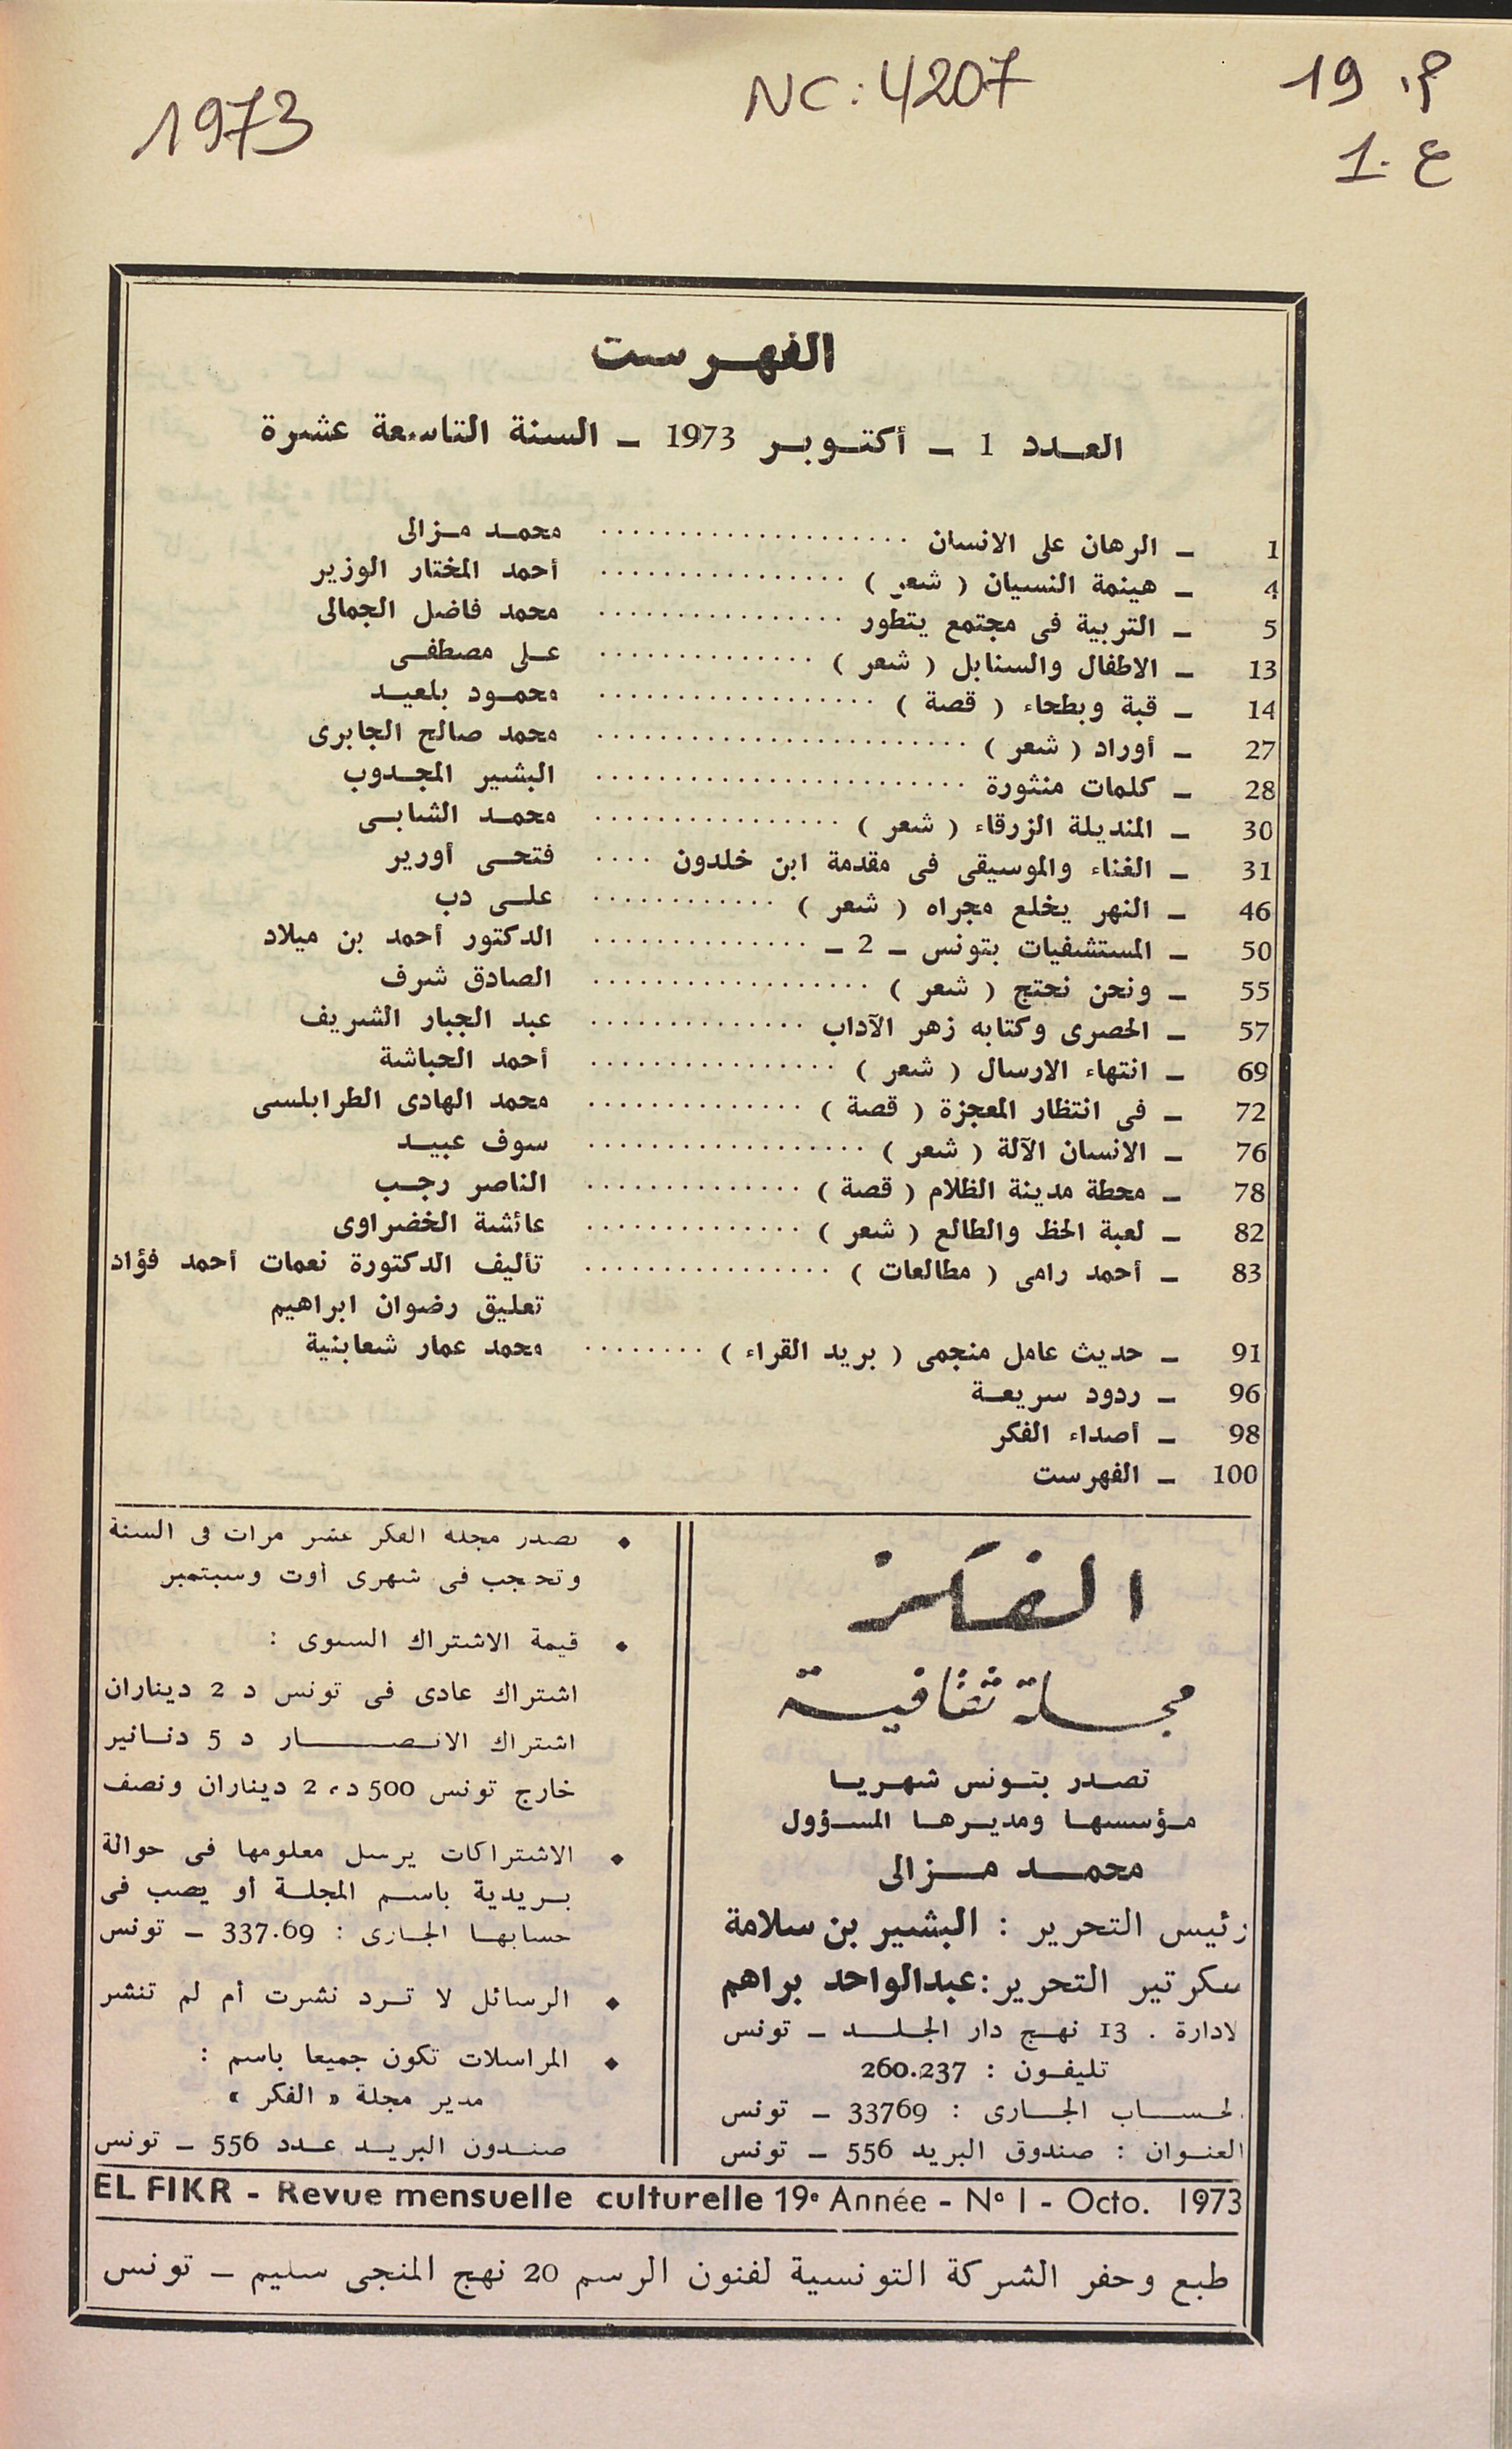 1973
NC: 4207
م. 19
ع. 1
الفهرست
العدد 1 ـ أكتوبر 1973 ـ السنة التاسعة عشرة
1 ـ الرهان على الانسان .................... محمد مزالى
4 ـ هينمة النسيان ( شعر ) ................ أحمد المختار الوزير
5 ـ التربية فى مجتمع يتطور ................ محمد فاضل الجمالى
13 ـ الاطفال والسنابل ( شعر ) .............. على مصطفى
14 ـ قبة وبطحاء ( قصة ) .................. محمود بلعيد
27 ـ أوراد ( شعر ) ........................ محمد صالح الجابرى
28 ـ كلمات منثورة ........................ البشير المجدوب
30 ـ المنديلة الزرقاء ( شعر ) ................ محمد الشابى
31 ـ الغناء والموسيقى فى مقدمة ابن خلدون .... فتحى أورير
46 ـ النهر يخلع مجراه ( شعر ) ............ على دب
50 ـ المستشفيات بتونس ـ 2 ـ .............. الدكتور أحمد بن ميلاد
55 ـ ونحن نحتج ( شعر ) .................. الصادق شرف
57 ـ الحصرى وكتابه زهر الآداب .............. عبد الجبار الشريف
69 ـ انتهاء الارسال ( شعر ) ................ أحمد الحباشة
72 ـ فى انتظار المعجزة ( قصة ) .............. محمد الهادى الطرابلسى
76 ـ الانسان الآلة ( شعر ) .................. سوف عبيد
78 ـ محطة مدينة الظلام ( قصة ) .............. الناصر رجب
82 ـ لعبة الحظ والطالع ( شعر ) .............. عائشة الخضراوى
83 ـ أحمد رامى ( مطالعات ) ................ تأليف الدكتورة نعمات أحمد فؤاد
تعليق رضوان ابراهيم
91 ـ حديث عامل منجمى ( بريد القراء ) ........ محمد عمار شعابنية
96 ـ ردود سريعة
98 ـ أصداء الفكر
100 ـ الفهرست
الفكر
مجلة ثقافية
تصدر بتونس شهريا
مؤسسها ومديرها المسؤول
محمد مزالى
رئيس التحرير : البشير بن سلامة
سكرتير التحرير : عبدالواحد براهم
لادارة . 13 نهج دار الجلد ـ تونس
تليفون : 260.237
لحساب الجارى : 33769 ـ تونس
العنوان : صندوق البريد 556 ـ تونس
♦ تصدر مجلة الفكر عشر مرات فى السنة
وتحجب فى شهرى أوت وسبتمبر
♦ قيمة الاشتراك السنوى :
اشتراك عادى فى تونس د 2 ديناران
اشتراك الانصار د 5 دنانير
خارج تونس 500 د، 2 ديناران ونصف
♦ الاشتراكات يرسل معلومها فى حوالة
بريدية باسم المجلة أو يصب فى
حسابها الجارى : 337.69 ـ تونس
♦ الرسائل لا ترد نشرت أم لم تنشر
♦ المراسلات تكون جميعا باسم :
مدير مجلة « الفكر »
صندون البريد عدد 556 ـ تونس
EL FIKR - Revue mensuelle culturelle 19e Année - No 1 - Octo. 1973
طبع وحفر الشركة التونسية لفنون الرسم 20 نهج المنجى سليم ـ تونس